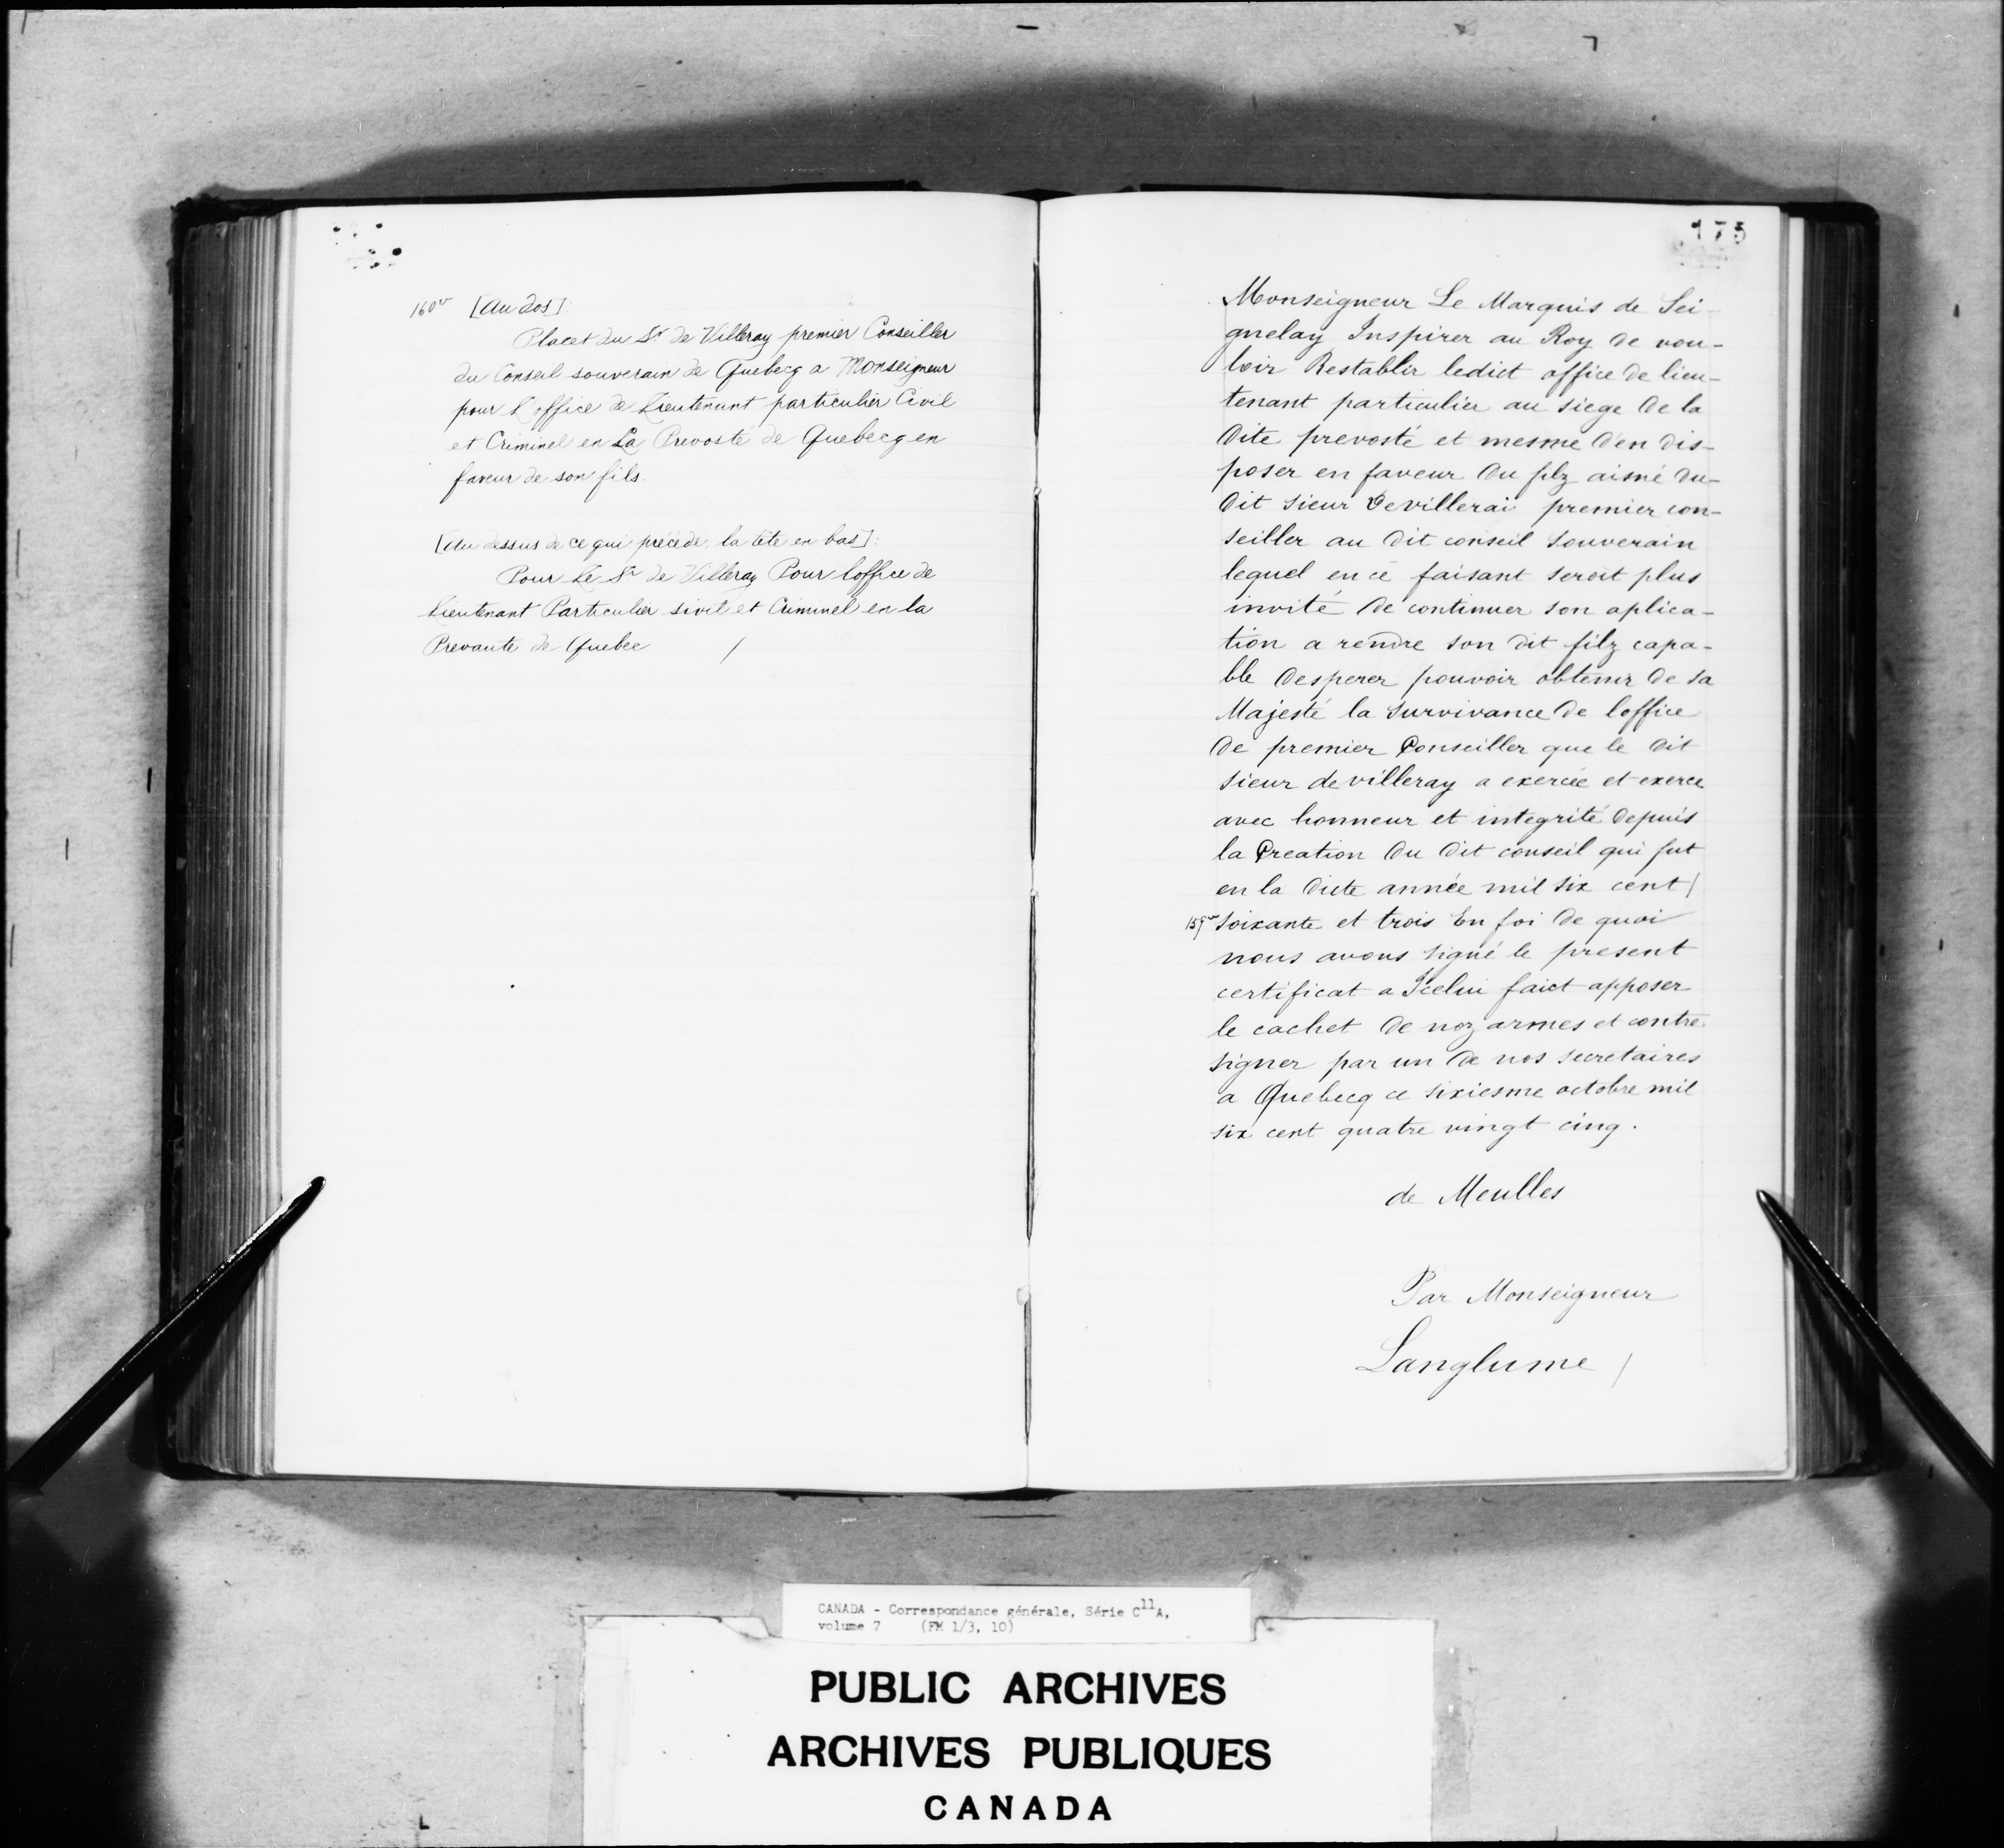 160v [Au dos]:
Placet du Sr. de Villeray premier Conseiller
du Conseil souverain de Quebecq a Monseigneur
pour L'office de Lieutenant particulier Civil
et Criminel en La Prevosté de Quebecq en
faveur de son fils.
[Au dessus de ce qui précède, la tête en bas]:
Pour Le Sr de Villeray Pour loffice de
Lieutenant Particulier sivil et Criminel en la
Prevauté de Quebec /
175
Monseigneur Le Marquis de Sei-
gnelay Inspirer au Roy de vou-
loir Restablir ledict office de lieu-
tenant particulier au siege de la
dite prevosté et mesme d'en dis-
poser en faveur du filz aisné du-
dit sieur Devillerai premier con-
seiller au dit conseil Souverain
lequel en cé faisant seroit plus
invité de continuer son aplica-
tion a rendre son dit filz capa-
ble desperer pouvoir obtenir de sa
Majesté la Survivance de loffice
de premier Conseiller que le dit
sieur de villeray a exercée et exerce
avec honneur et integrité depuis
la Creation du dit conseil qui fut
en la dicte année mil six cent /
159vo Soixante et trois En foi de quoi
nous avons signé le present
certificat a Icelui faict apposer
le cachet de noz armes et contre
signer par un de nos secretaires
a Quebecq ce sixiesme octobre mil
six cent quatre vingt cinq.
de Meulles
Par Monseigneur
Langlume /
CANADA - Correspondance générale, Série C11A,
volume 7 (FM 1/3, 10)
PUBLIC ARCHIVES
ARCHIVES PUBLIQUES
CANADA